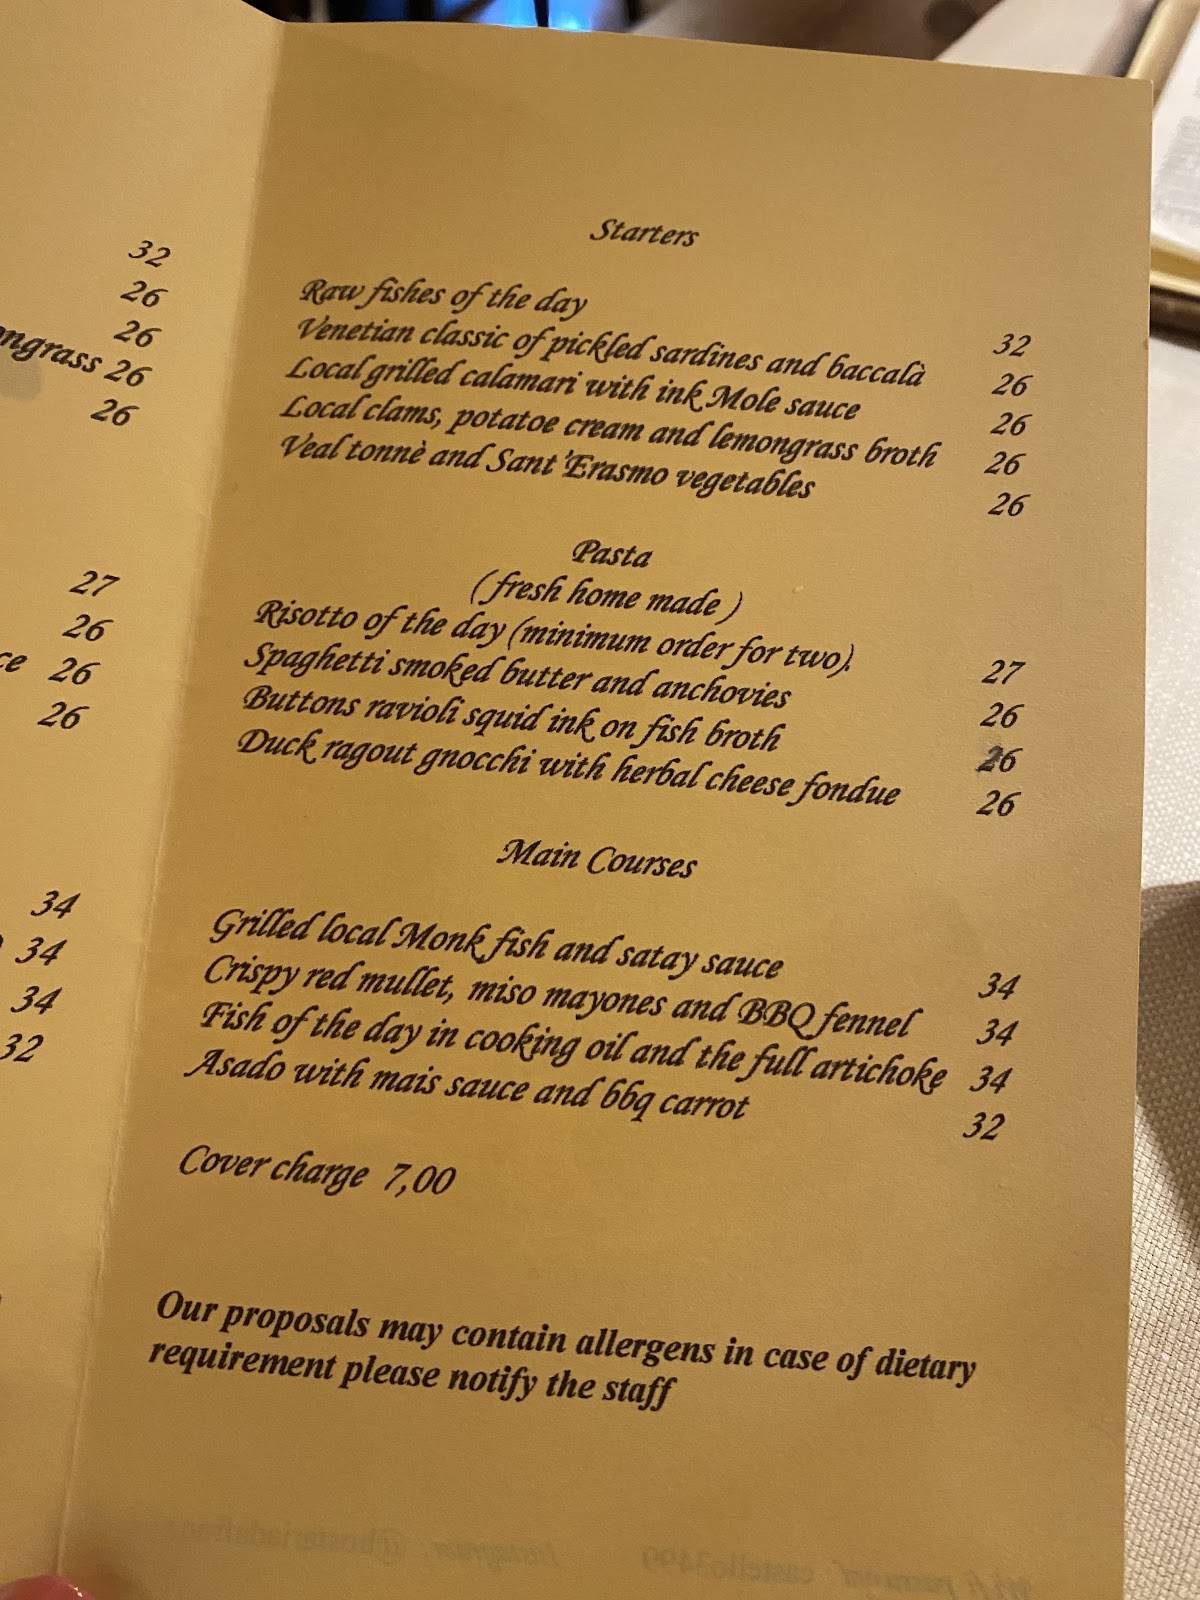 32
26
26
ongrass 26
26
27
26
ce 26
26
34
34
34
32
Starters
Raw fishes of the day 32
Venetian classic of pickled sardines and baccalà 26
Local grilled calamari with ink Mole sauce 26
Local clams, potatoe cream and lemongrass broth 26
Veal tonnè and Sant'Erasmo vegetables 26
Pasta
( fresh home made )
Risotto of the day (minimum order for two). 27
Spaghetti smoked butter and anchovies 26
Buttons ravioli squid ink on fish broth 26
Duck ragout gnocchi with herbal cheese fondue 26
Main Courses
Grilled local Monk fish and satay sauce 34
Crispy red mullet, miso mayones and BBQ fennel 34
Fish of the day in cooking oil and the full artichoke 34
Asado with mais sauce and bbq carrot 32
Cover charge 7,00
Our proposals may contain allergens in case of dietary
requirement please notify the staff